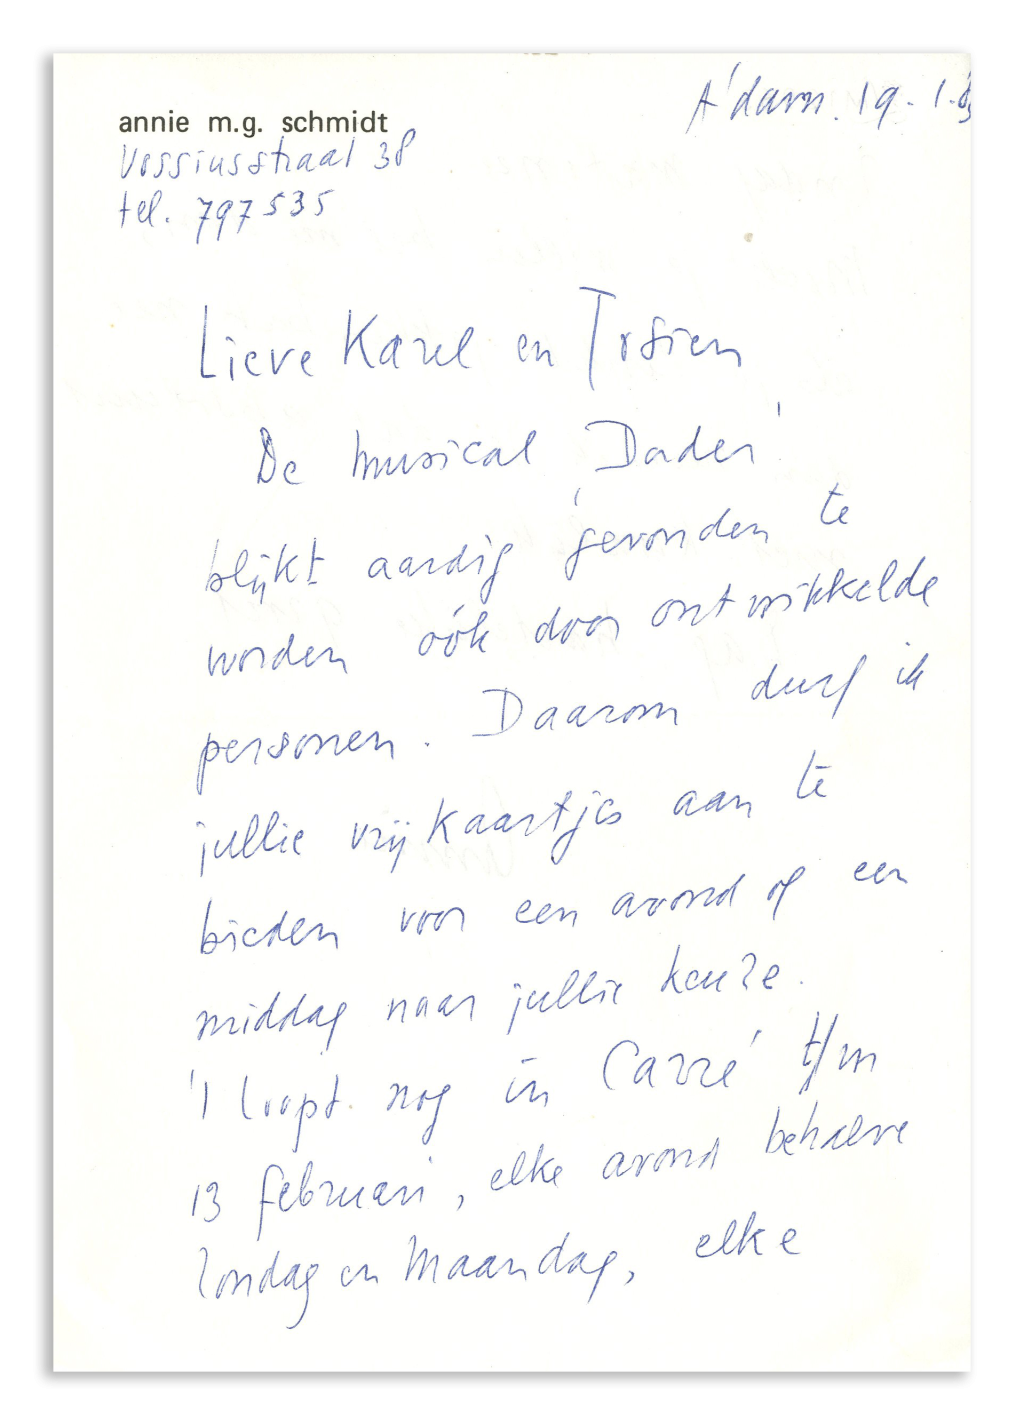 annie m.g. schmidt
A'dam. 19-1-
Vossiusstraat 38
tel. 797535
Lieve Karel en
De musical 'De Dader'
blijkt aardig gevonden te
worden oók door ontwikkelde
personen. Daarom durf ik
jullie vrijkaartjes aan te
bieden voor een avond of een
middag naar jullie keuze.
't loopt nog in Carré t/m
13 februari, elke avond behalve
Zondag en Maandag, elke